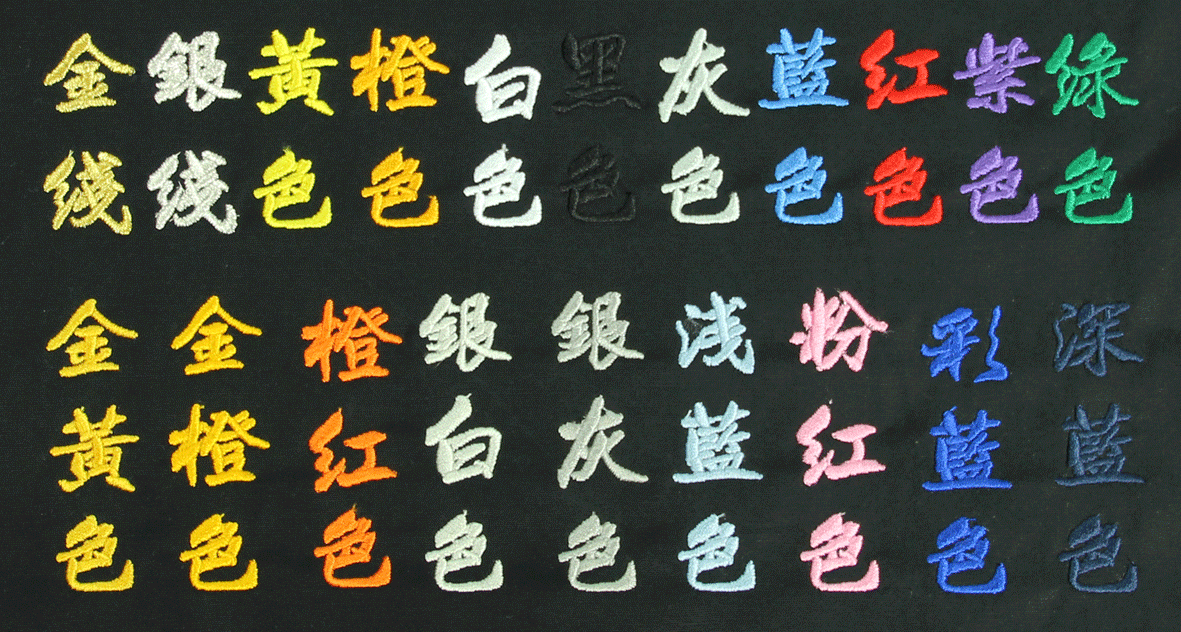 金线
銀线
黃色
橙色
白色
黑色
灰色
藍色
红色
紫色
綠色
金黃色
金橙色
橙红色
銀白色
銀灰色
浅藍色
粉红色
彩藍色
深藍色